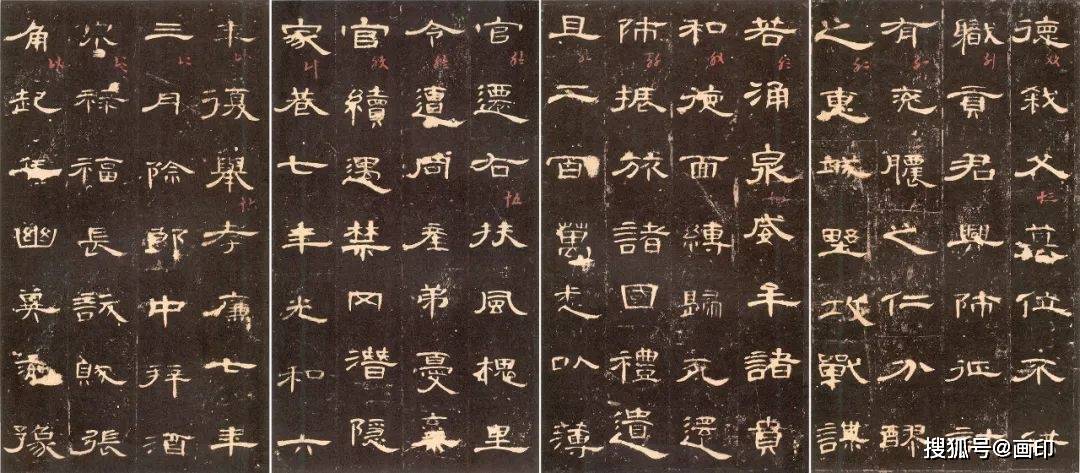 德弒父篡位不供
職貢君興師征討
有兗膿之仁分醪
之惠城野攻戰謀
若涌泉威牟諸賁
和德面縛歸死還
師振旅諸國禮遺
且二百萬悉以薄
官遷右扶風槐里
令遭同產弟憂棄
官續遇禁网潛隱
家巷七年光和六
年復舉孝廉七年
三月除郎中拜酒
泉祿福長訞賊張
角起兵幽冀兗豫
搜狐号@画印